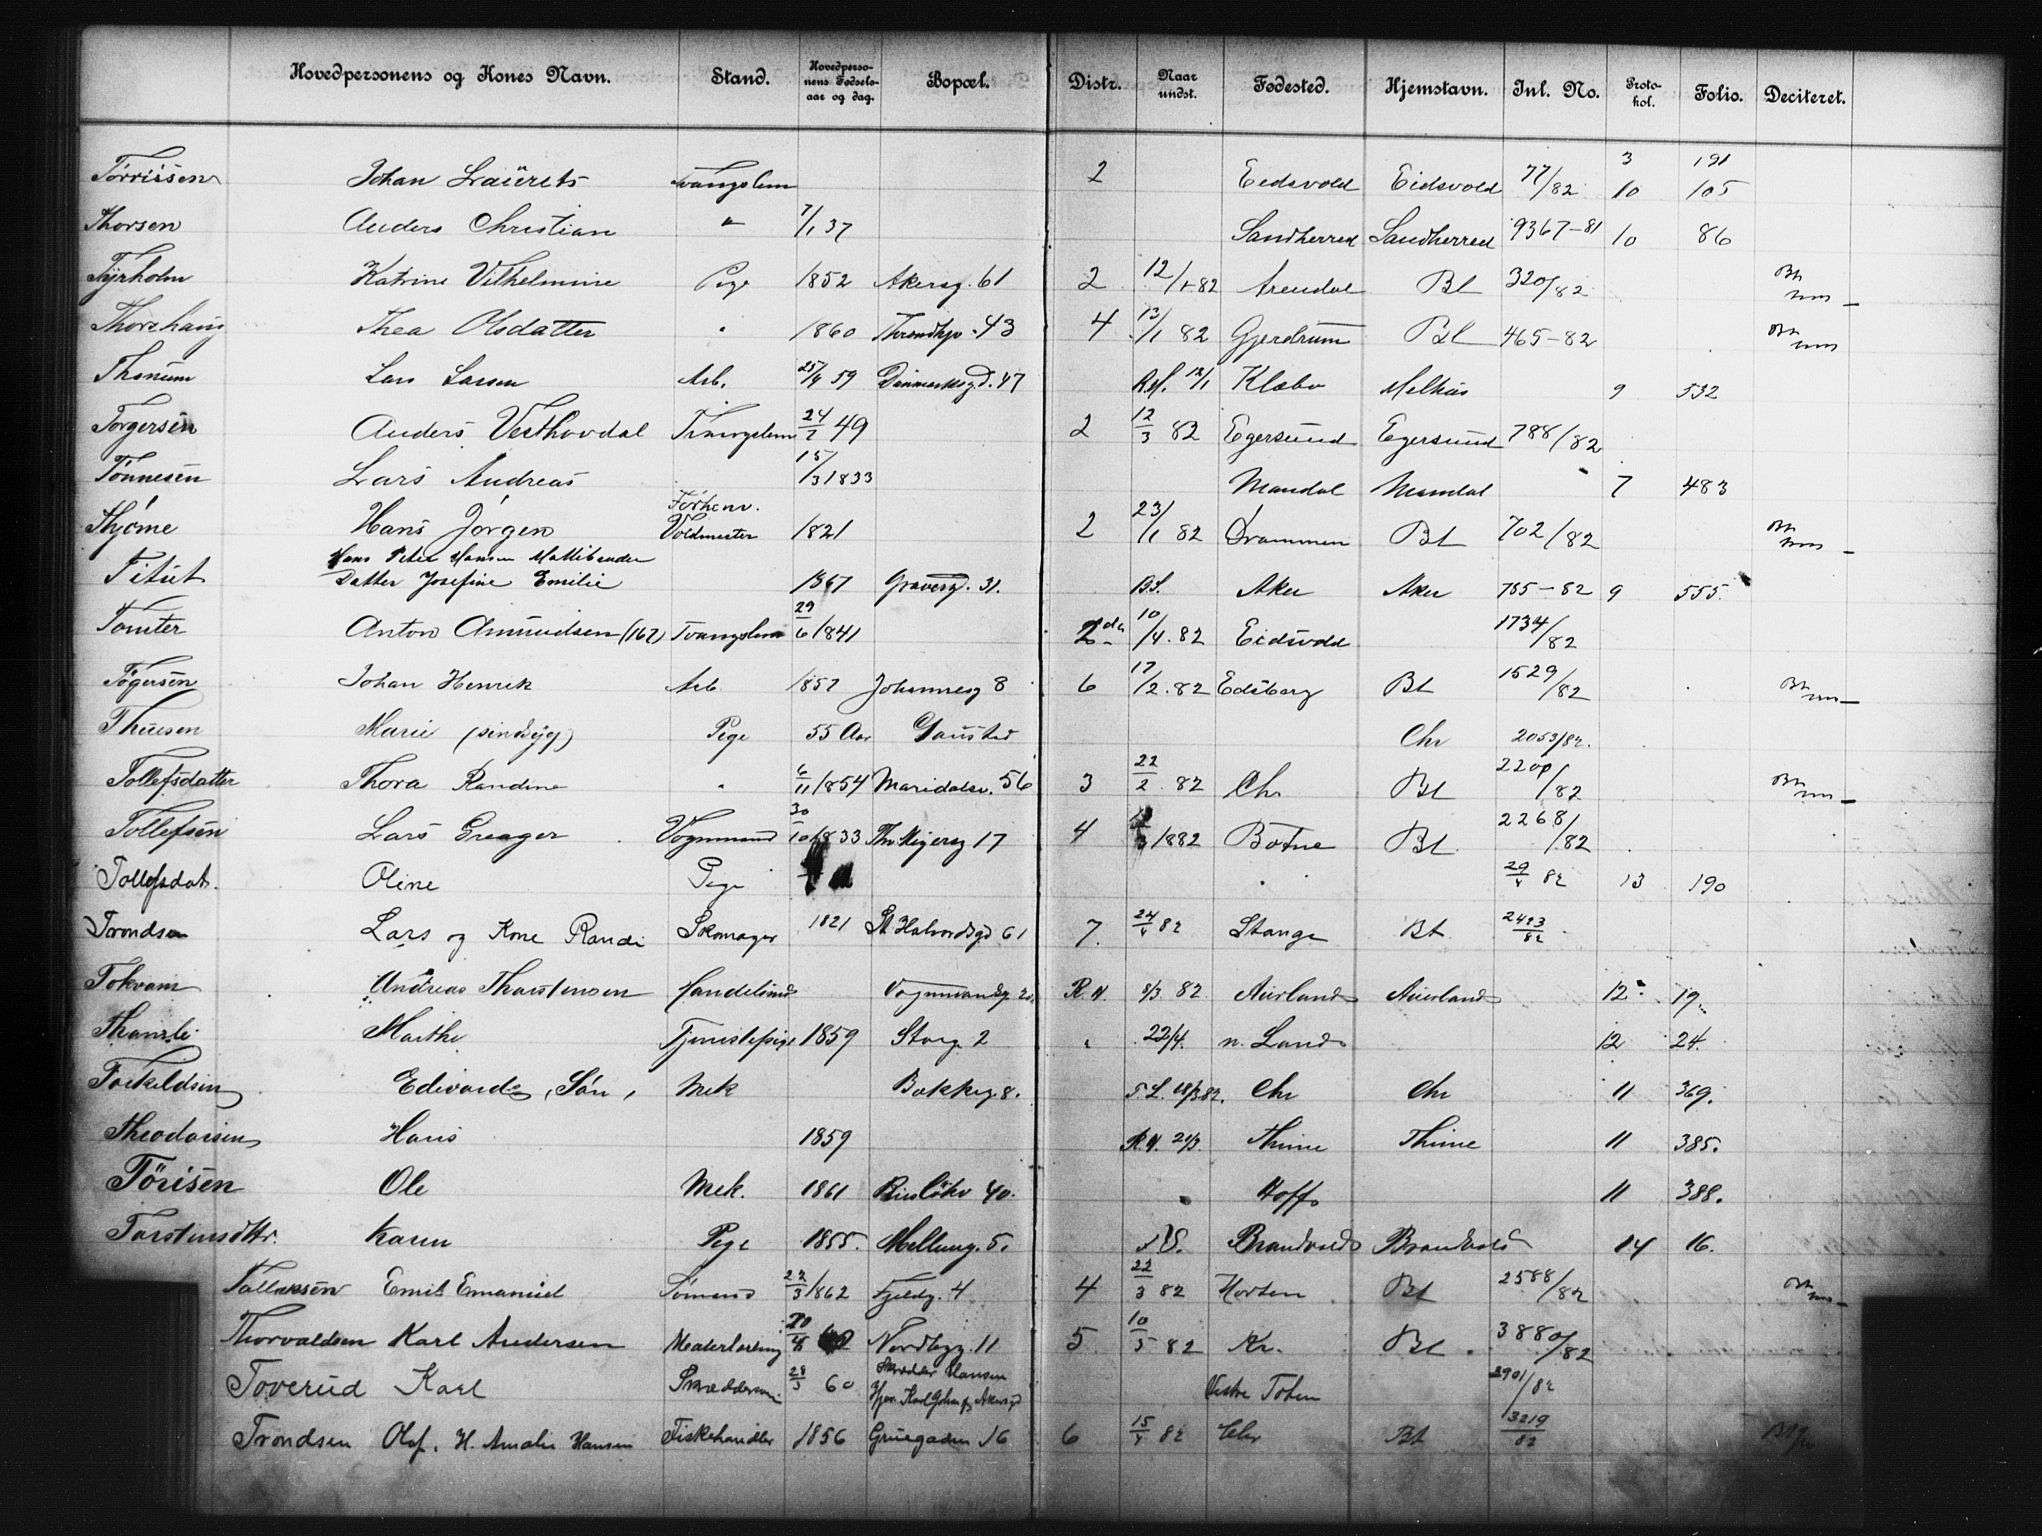 Hovedpersonens og Kones Navn. Stand. Hovedpersonens Fødselsaar og dag. Bopæl. Distr. Naar undst. Fødested. Hjemstavn. Inl. No. Protokol. Folio. Deciteret.
Torrissen Johan Laurets Tvangslem 2 Eidsvold Eidsvold 77/82 3 10 191 105
Thorsen Anders Christian " 7/1 37 Sandherred Sandherred 9367-81 10 86
Tyrholm Katrine Vilhelmine Pige 1852 Akersg. 61 2 12/1 82 Arendal Bt 320/82
Thorshaug Thea Olsdatter " 1860 43 4 13/1 82 Gjerdrum Bt 465-82
Thanum Lars Larsen Arb. 25/4 59 Danmarksgd. 47 R.N. 12/1 Klæbo Melhus 9 532
Torgersen Anders Vesthovdal Tvangslem 24/2 49 2 12/3 82 Egersund Egersund 788/82
Tønnesen Lars Andreas 15/3 1833 Mandal Mandal 7 483
Thjøme Hans Jørgen Forhenv. Voldmester 1821 2 23/1 82 Drammen Bt 702/82
Titut Hans Peter Hansen
Datter Josefine Emilie 1867 Graversgd. 31. B.S. Aker Aker 785-82 9 555.
Tomter Anton Amundsen (162) Tvangslem 29/6 1841 2da 10/4. 82 Eidsvold 1734/82
Togersen Johan Henrik Arb 1857 Johannesg 8 6 17/2. 82 Edsberg Bt 1529/82
Thuesen Marie (sindsyg) Pige 55 Aar Gausted Chr 2053/82.
Tollefsdatter Thora Randine " 6/11 1854 Maridalsv. 56 3 22/2 82 Chr Bt 2200/82
Tollefsen Lars Greager Vognmand 30/10 1833 Th. Meyersg 17 4 /3 1882 Botne Bt 2268/82
Tollefsdat. Oline Pige 29/4 82 13 190
Trondsen Lars og Kone Randi Skomager 1821 St Halvordsgd 61 7. 24/4 82 Stange Bt 2493/82
Tokvam Andreas Thorstensen Handelsmd Vognmandsg 20 R.N. 8/3. 82 Aurland Aurland 12 19.
Marthe Tjenestepige 1859 Storg 2 " 22/4. n. Land 12 24.
Torkildsen Edvard, Søn, Mek Bakkeg. 8. T.L. 28/3 82. Chr Chr 11 369.
Theodorsen Hans 1859 R.N. 21/3. Thime Thime 11 385.
Törisen Ole Mek. 1861 40. Hoff 11 388.
Torstensdttr. Karen Pige 1855. Mellemg. 5. Brandvold Brandvold 14 16.
Tallaksen Emil Emanuel Sømand 22/3 1862 Fjeldg. 4 4 22/3 82 Horten Bt 2588/82
Thorvaldsen Karl Andersen 20/4 Nordbyg. 11 5 10/5 82 Kr. Bt 3880/82
Toverud Karl Skræddersv. 28/3 60 Skrædder Hansen Vestre Toten 2901/82
Trondsen Olaf. H. Amalie Hansen Fiskehandler 1856 Gruegaden 16 6 15/4 82 Chr Bt 3219/82